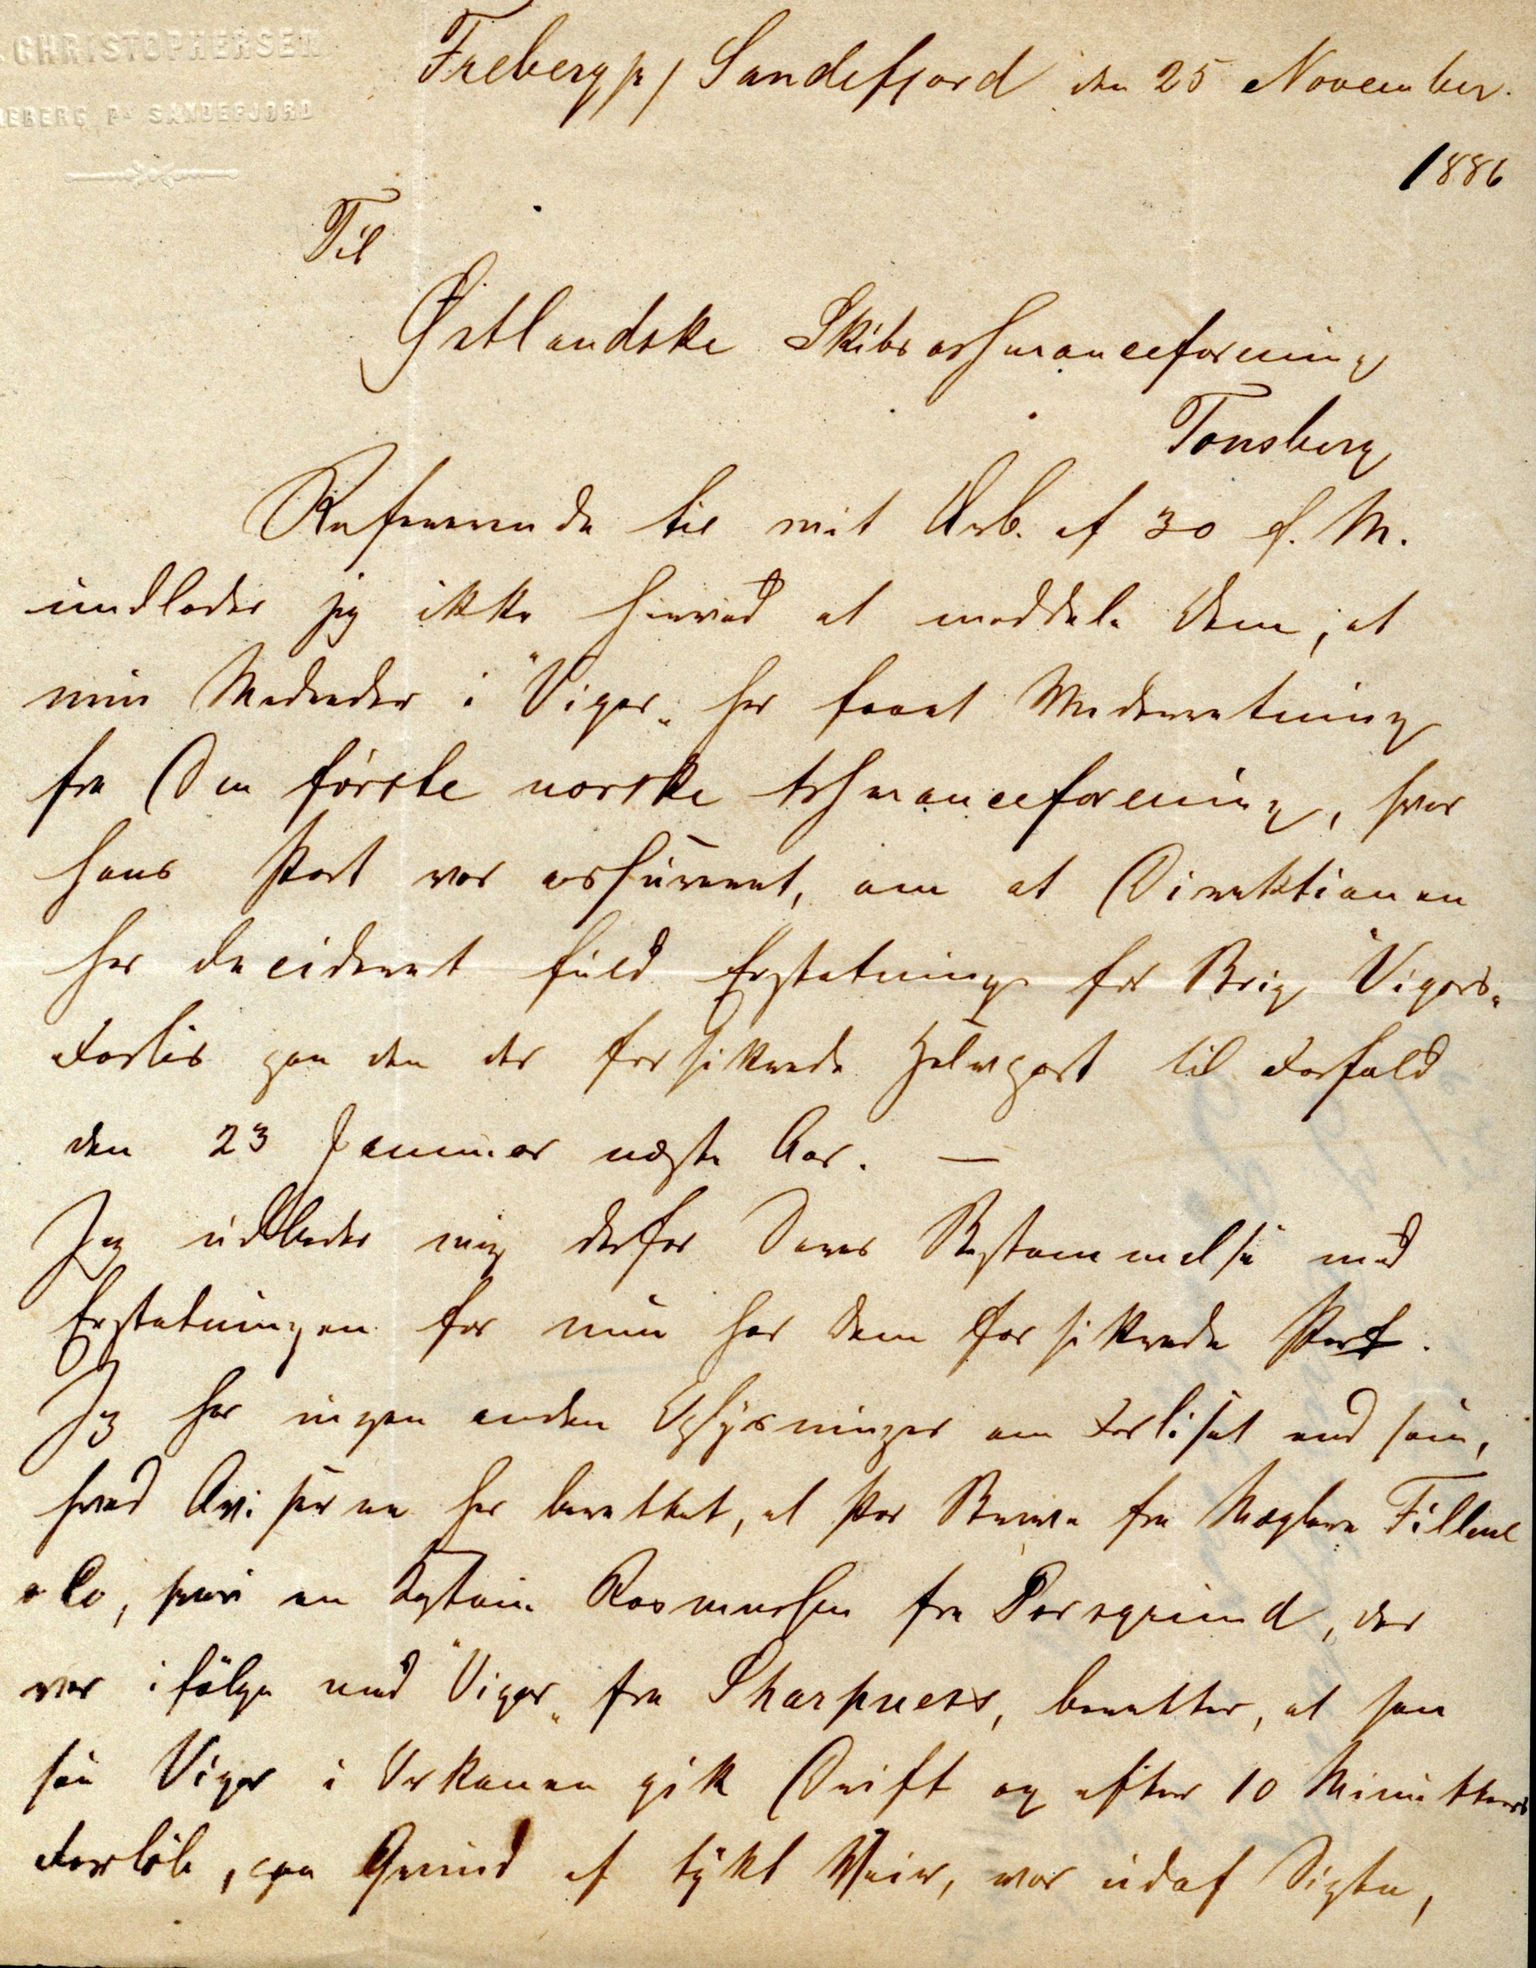 CHRISTOPHERSEN
EBERG Pr SANDEFJORD
Freberg pr/ Sandefjord den 25 November.
1886
Til
Østlandske Skibsassuranceforening
Tonsberg
Refererende til mit Ærb. af 30 f. M.
undlader jeg ikke herved at meddele Dem, at
min Medreder i "Vigor" har faaet Underretning
fra Den første norske Assuranceforening, hvor
hans Part var assureret, om at Direktionen
har decideret fuld Erstatning for Brig "Vigors"
Forlis paa den der forsikrede Halvpart til Forfald
den 23 Januar næste Aar. —
Jeg udbeder mig derfor Deres Bestemmelse med
Erstatningen for min hos Dem forsikrede Part.
Jeg har ingen anden Oplysninger om Forliset end som,
hvad Aviserne har berettet, at per Breve fra Mæglere Fillene
& Co, hvori en Kaptain Rasmussen fra Porsgrund, der
var i følge med "Vigor" fra Sharpness, beretter, at han
saa Vigor i Orkanen gik Drift og efter 10 Minutters
Forløb, paa Grund af tykt Veir, var udaf Sigte,